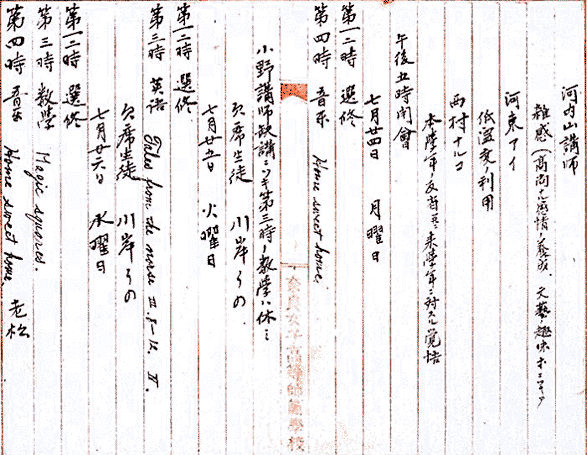 河内山講師
雑感（高尚ナル感情ノ養成、文藝趣味
河東アイ
低温度ノ利用
西村ナルコ
本學年ノ反省並ニ来學年ニ対スル覚悟
午後五時閉會
七月廿四日　月曜日
第一二時　選修
第四時　音楽　Home sweet home.
奈良女子高等師範學校
小野講師缺講ニツキ第三時ノ数学ハ休ミ
欠席生徒　川岸その
七月廿五日　火曜日
第一二時　選修
第三時　英語　Tales from the norse III. 8-12. IV.
欠席生徒　川岸その
七月廿六日　水曜日
第一二時　選修
第三時　数学　Magic squares.
第四時　音楽　Home sweet home.　老松